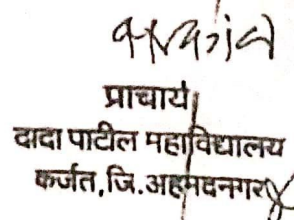 प्राचार्य
दादा पाटील महाविद्यालय
कर्जत, जि.अहमदनगर